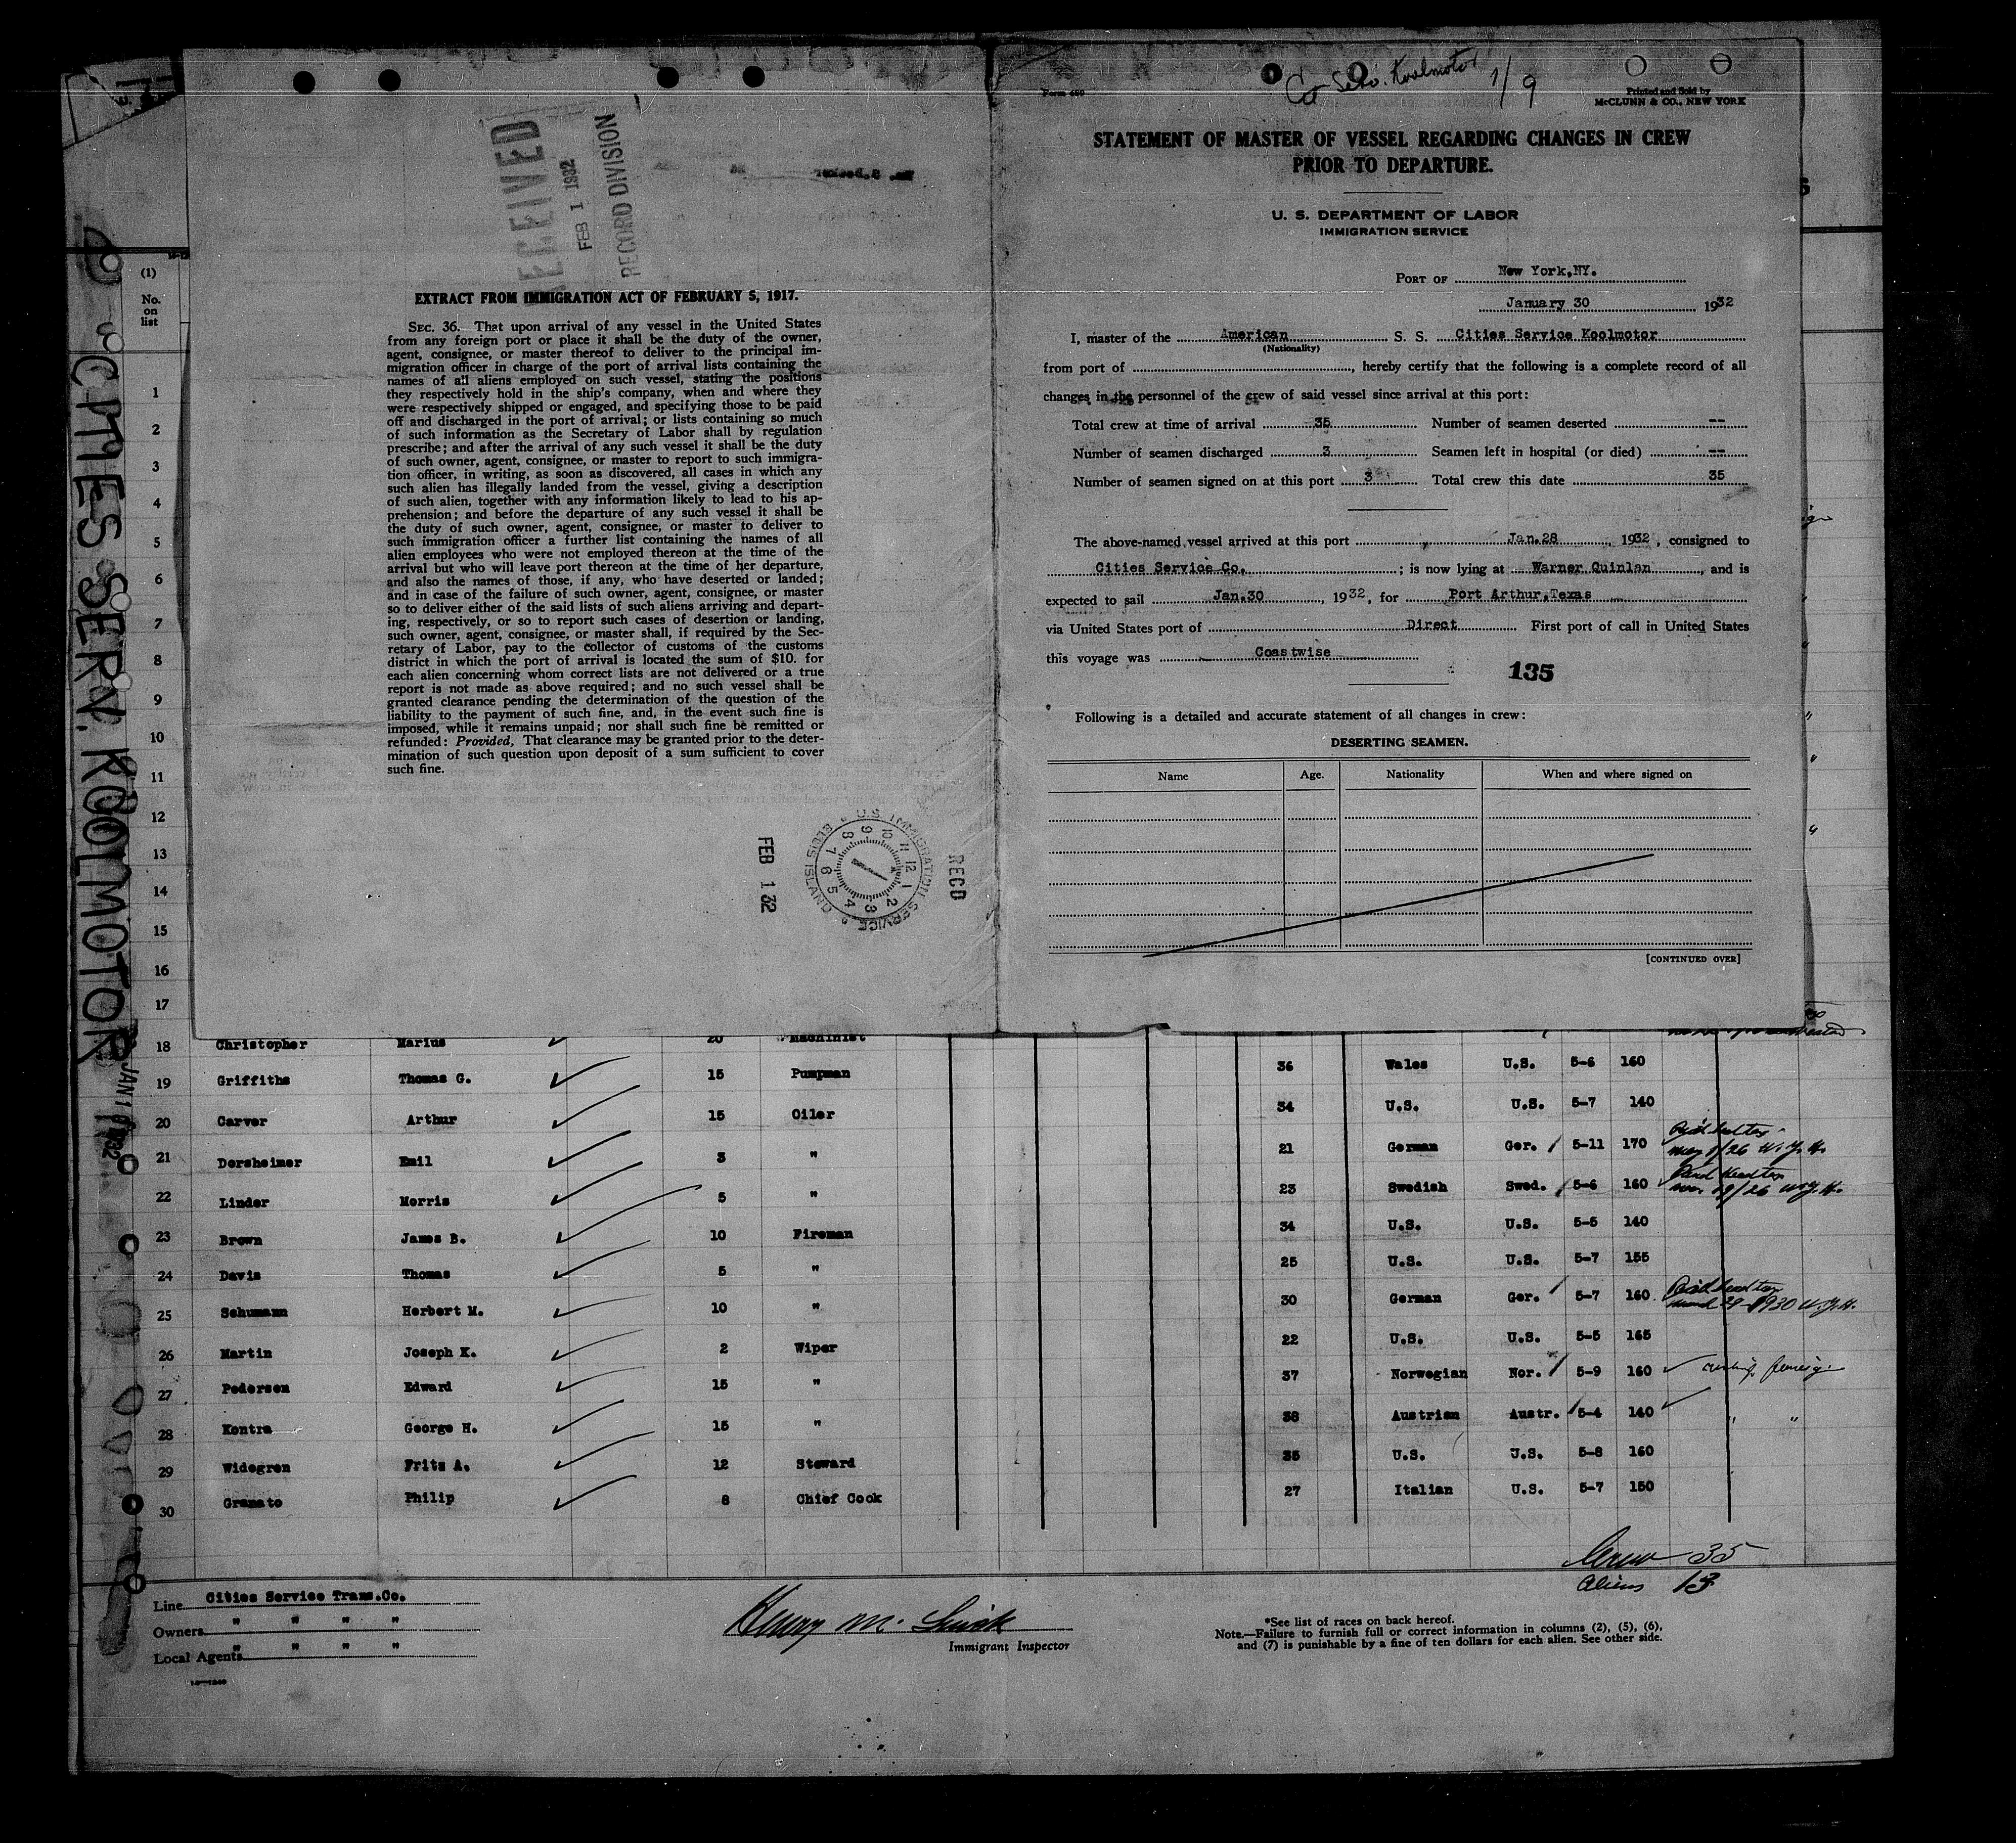 RECEIVED
FEB 1 1932
RECORD DIVISION
EXTRACT FROM IMMIGRATION ACT OF FEBRUARY 5, 1917.
SEC. 36. That upon arrival of any vessel in the United States
from any foreign port or place it shall be the duty of the owner,
agent, consignee, or master thereof to deliver to the principal im-
migration officer in charge of the port of arrival lists containing the
names of all aliens employed on such vessel, stating the positions
they respectively hold in the ship's company, when and where they
were respectively shipped or engaged, and specifying those to be paid
off and discharged in the port of arrival; or lists containing so much
of such information as the Secretary of Labor shall by regulation
prescribe; and after the arrival of any such vessel it shall be the duty
of such owner, agent, consignee, or master to report to such immigra-
tion officer, in writing, as soon as discovered, all cases in which any
such alien has illegally landed from the vessel, giving a description
of such alien, together with any information likely to lead to his ap-
prehension; and before the departure of any such vessel it shall be
the duty of such owner, agent, consignee, or master to deliver to
such immigration officer a further list containing the names of all
alien employees who were not employed thereon at the time of the
arrival but who will leave port thereon at the time of her departure,
and also the names of those, if any, who have deserted or landed;
and in case of the failure of such owner, agent, consignee, or master
so to deliver either of the said lists of such aliens arriving and depart-
ing, respectively, or so to report such cases of desertion or landing,
such owner, agent, consignee, or master shall, if required by the Sec-
retary of Labor, pay to the collector of customs of the customs
district in which the port of arrival is located the sum of $10. for
each alien concerning whom correct lists are not delivered or a true
report is not made as above required; and no such vessel shall be
granted clearance pending the determination of the question of the
liability to the payment of such fine, and, in the event such fine is
imposed, while it remains unpaid; nor shall such fine be remitted or
refunded: Provided, That clearance may be granted prior to the deter-
mination of such question upon deposit of a sum sufficient to cover
such fine.
FEB 1 32
U.S. IMMIGRATION SERVICE ELLIS ISLAND
RECD
Form 680
Koolmotor 1/9
Printed and Sold by
McCLUNN & CO., NEW YORK
STATEMENT OF MASTER OF VESSEL REGARDING CHANGES IN CREW
PRIOR TO DEPARTURE.
U. S. DEPARTMENT OF LABOR
IMMIGRATION SERVICE
PORT OF New York,NY.
January 30 1932
I, master of the American S. S. Cities Service Koolmotor
(Nationality)
from port of , hereby certify that the following is a complete record of all
changes in the personnel of the crew of said vessel since arrival at this port:
Total crew at time of arrival 35 Number of seamen deserted --
Number of seamen discharged 3 Seamen left in hospital (or died) --
Number of seamen signed on at this port 3 Total crew this date 35
The above-named vessel arrived at this port Jan.28 , 1932, consigned to
Cities Service Co. ; is now lying at Warner Quinlan , and is
expected to sail Jan.30 , 1932, for Port Arthur,Texas
via United States port of Direct First port of call in United States
this voyage was Coastwise
135
Following is a detailed and accurate statement of all changes in crew:
DESERTING SEAMEN.
Name Age. Nationality When and where signed on
[CONTINUED OVER]
CITIES SERV. KOOLMOTOR
(1)
No.
on
list
1
2
3
4
5
6
7
8
9
10
11
12
13
14
15
16
17
18 Christopher Marius 20 Machinist
19 Griffiths Thomas G. 15 Pumpman 36 Wales U.S. 5-6 160
20 Carver Arthur 15 Oiler 34 U.S. U.S. 5-7 140
21 Dersheimer Emil 3 " 21 German Ger. 5-11 170
22 Linder Morris 5 " 23 Swedish Swed. 5-6 160
23 Brown James B. 10 Fireman 34 U.S. U.S. 5-5 140
24 Davis Thomas 5 " 25 U.S. U.S. 5-7 155
25 Schumann Herbert M. 10 " 30 German Ger. 5-7 160
26 Martin Joseph K. 2 Wiper 22 U.S. U.S. 5-5 165
27 Pedersen Edward 15 " 37 Norwegian Nor. 5-9 160
28 Kontra George H. 15 " 38 Austrian Austr. 5-4 140 " "
29 Widegren Fritz A. 12 Steward 35 U.S. U.S. 5-8 160
30 Gramato Philip 8 Chief Cook 27 Italian U.S. 5-7 150
Crew 35
Aliens 13
Line Cities Service Trans.Co.
Owners " " " "
Local Agents " " " "
Henry M.
Immigrant Inspector
*See list of races on back hereof.
Note.—Failure to furnish full or correct information in columns (2), (5), (6),
and (7) is punishable by a fine of ten dollars for each alien. See other side.